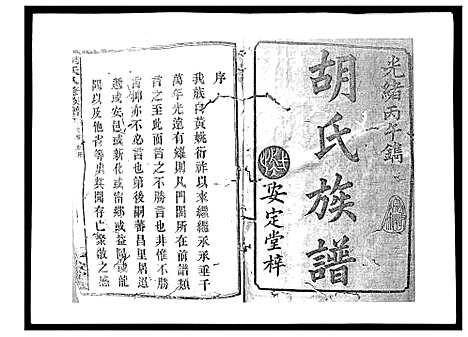 光緒丙子鐫
胡氏族譜
安定堂梓
序
我族自黃姚衍祚以來繼繼承承垂千
萬年光遠有耀則凡門閥所在前譜類
言之至此而言之不勝言也非惟不勝
言抑亦不必言也第後嗣蕃昌里居遐
邇或安邑或新化或甯鄉或益陽
閩以及他省等處其間存亡聚散之感